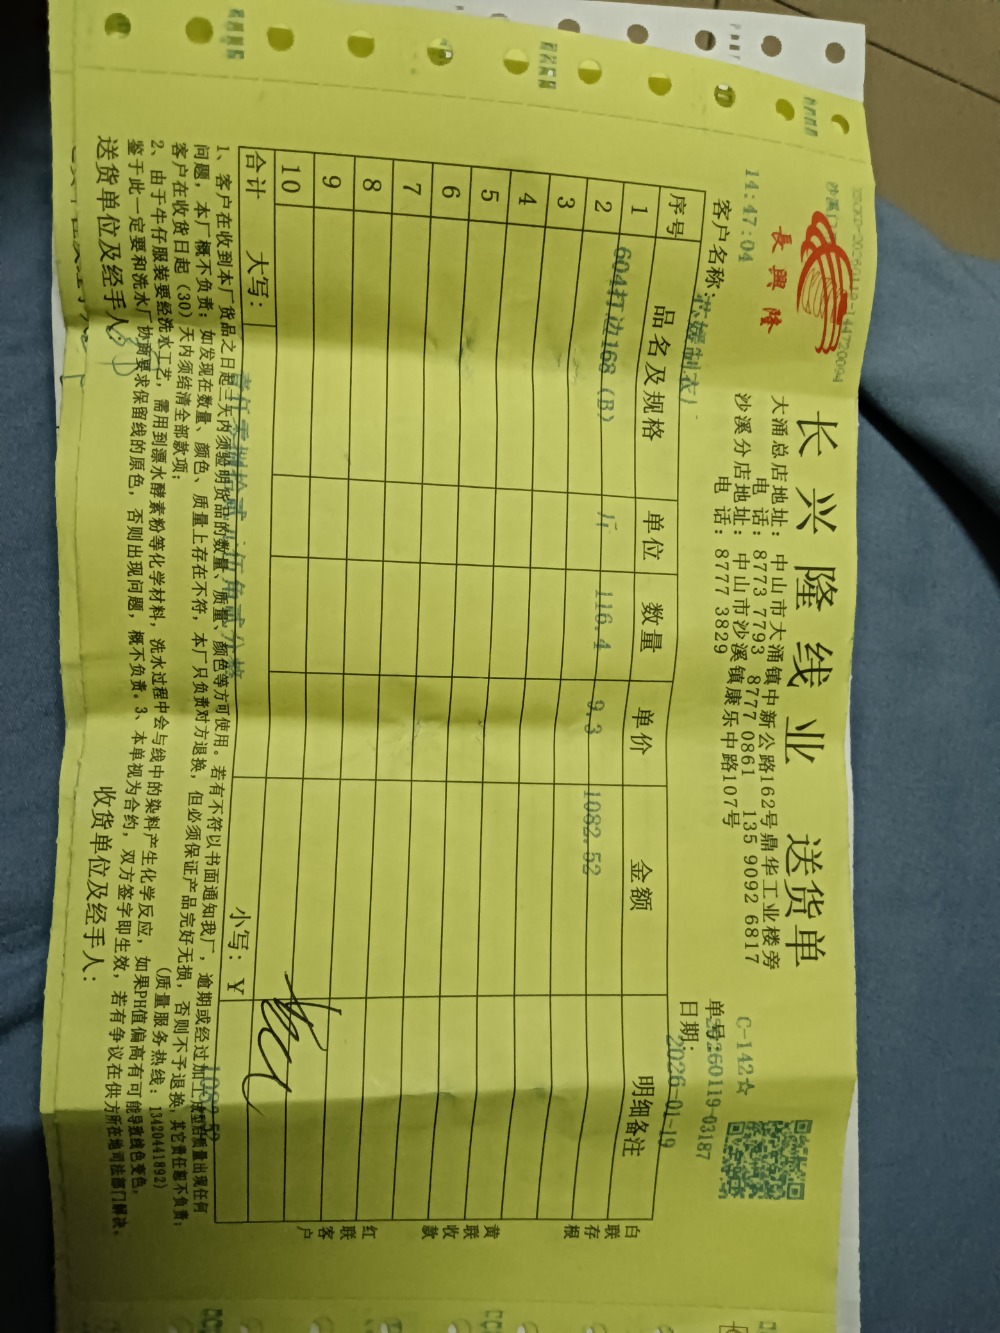 長興隆
长兴隆线业 送货单
大涌总店地址：中山市大涌镇中新公路162号鼎华工业楼旁
电话：8773 7793 8777 0861 135 9092 6817
沙溪分店地址：中山市沙溪镇康乐中路107号
电话：8777 3829
C-142☆
14:47:04
单号：20260119-03187
客户名称：
日期：2026-01-19
序号 品名及规格 单位 数量 单价 金额 明细备注
1 604打边168（B） 斤 116.4 9.3 1082.52
2
3
4
5
6
7
8
9
10
合计 大写： 小写：¥ 1082.52
白联存根
黄联收款
红联客户
1、客户在收到本厂货品之日起三天内须验明货品的数量、质量、颜色等方可使用。若有不符以书面通知我厂，逾期或经过加工成型后质量出现任何
问题，本厂概不负责；如发现在数量、颜色、质量上存在不符，本厂只负责对方退换，但必须保证产品完好无损，否则不予退换，其它责任概不负责；
客户在收货日起（30）天内须结清全部款项； （质量服务热线：13420441892）
2、由于牛仔服装要经洗水工艺，需用到漂水酵素粉等化学材料，洗水过程中会与线中的染料产生化学反应，如果PH值偏高有可能导致线色变色，
鉴于此一定要和洗水厂协商要求保留线的原色，否则出现问题，概不负责。3、本单视为合约，双方签字即生效，若有争议在供方所在地司法部门解决。
送货单位及经手人： 收货单位及经手人：